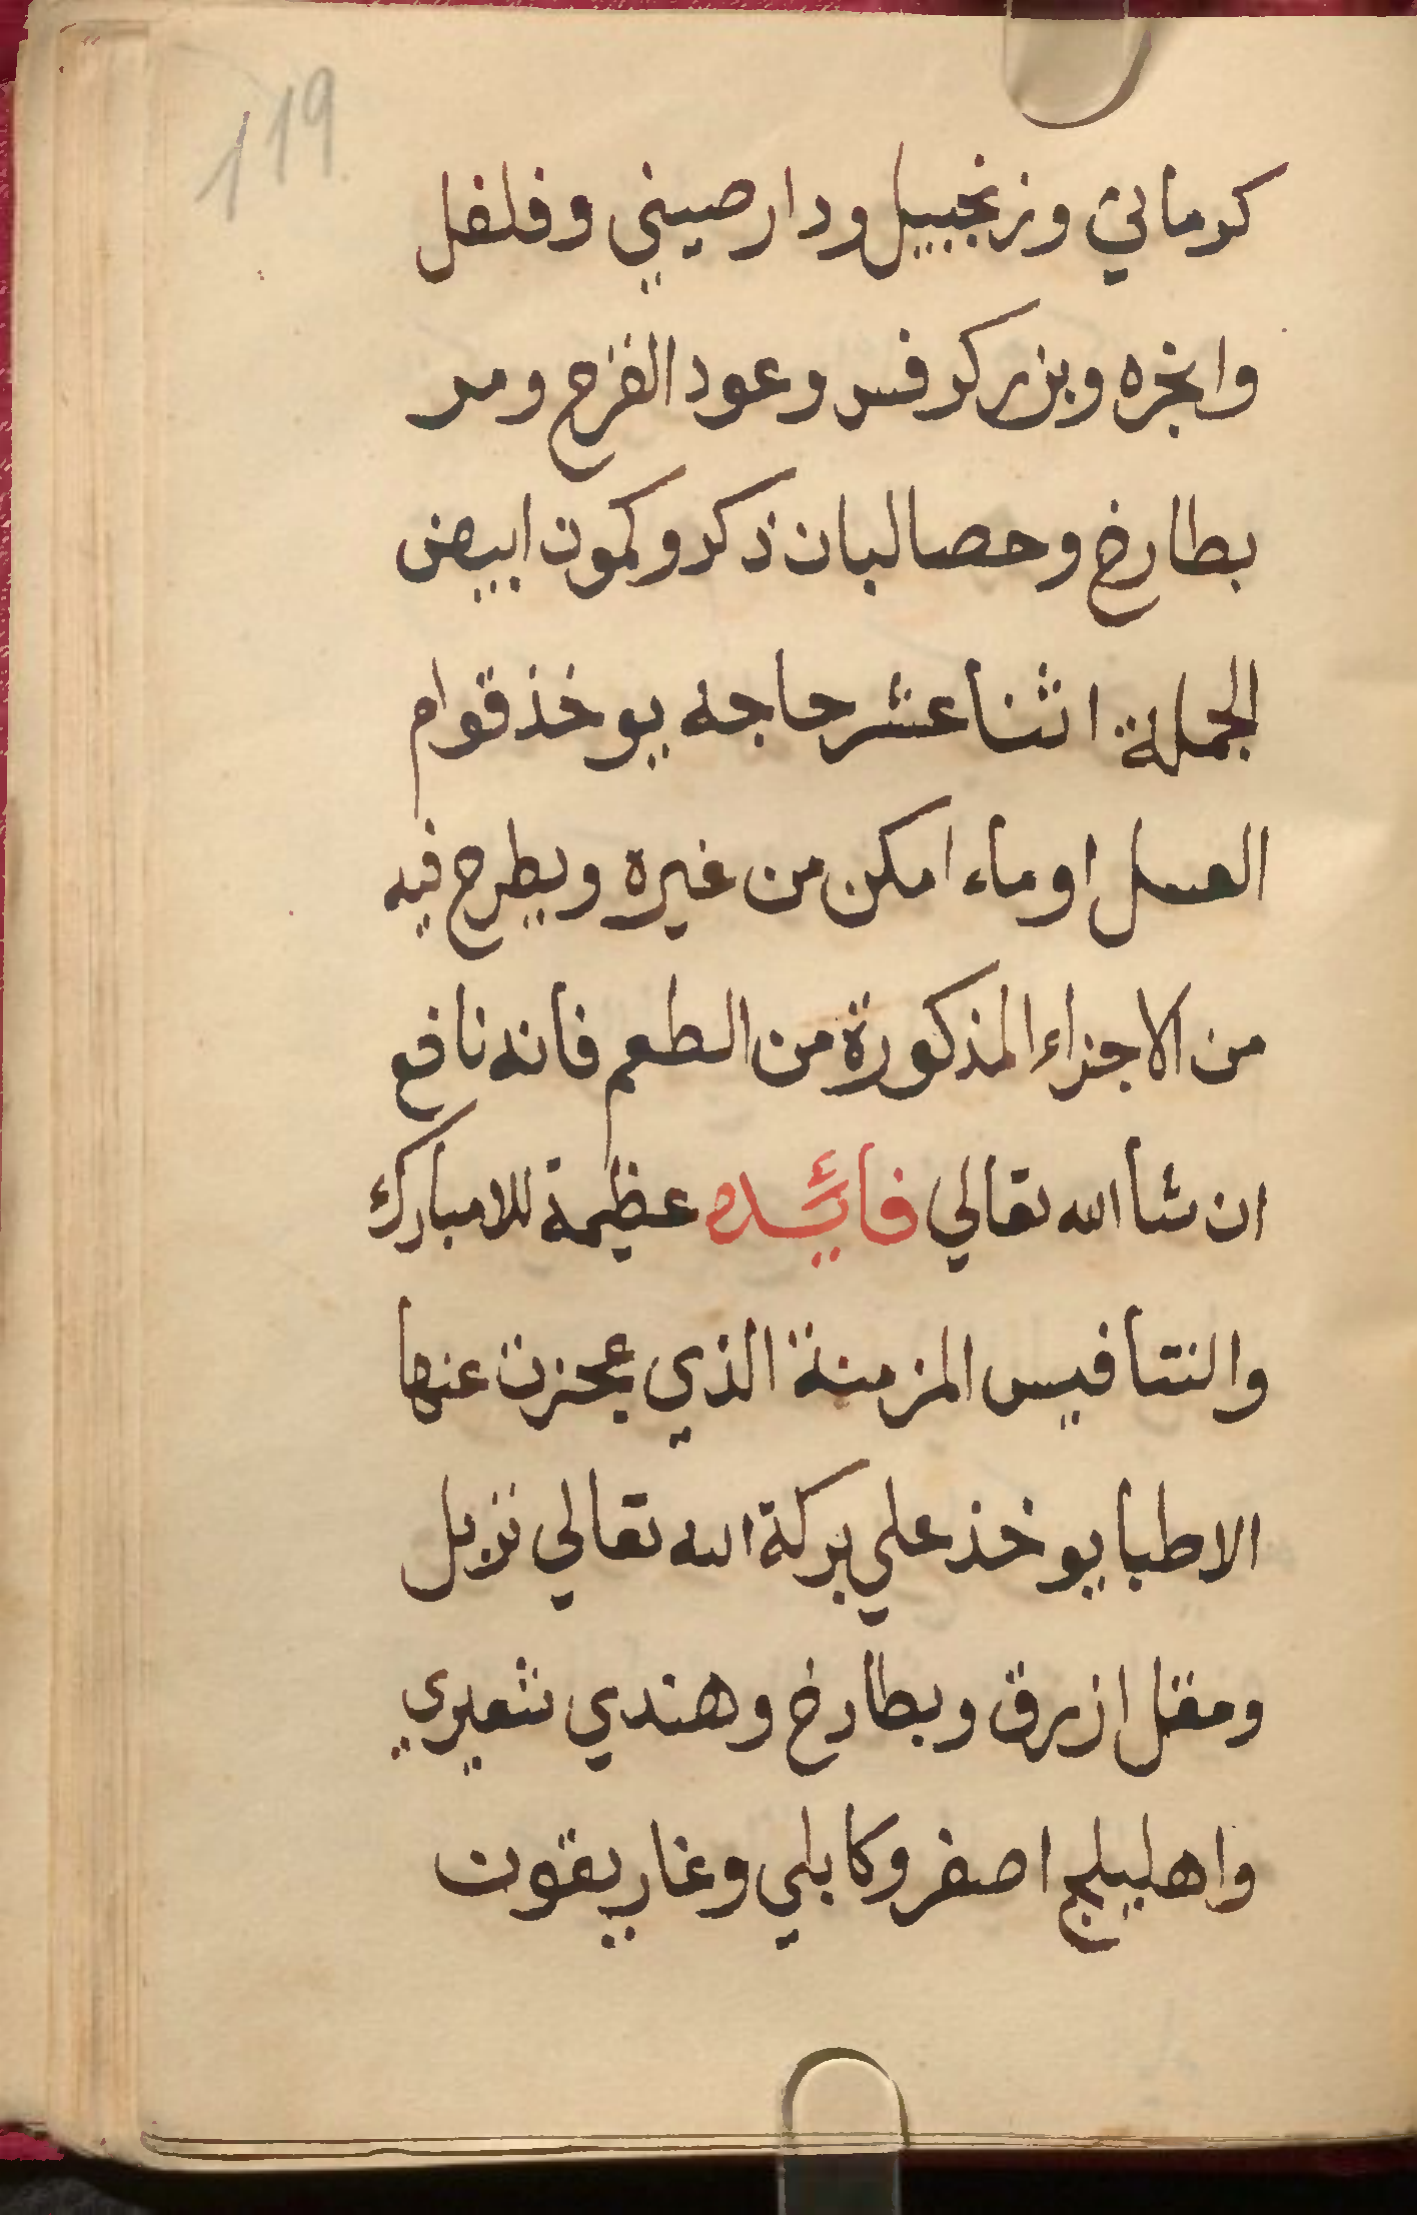 119
كرماني وزنجبيل ودارصيني وفلفل
وانجره وبزر كرفس وعود القرح ومر
بطارخ وحصالبان ذكر وكمون ابيض
الجملة اثنا عشر حاجه يوخذ قوام
العسل او ماء امكن من غيره ويطرح فيه
من الاجزاء المذكورة من الطعم فانه نافع
ان شأ الله تعالي فائيده عظيمة للامبارك
والنتافيس المزمنة الذي عجزت عنها
الاطبا يوخذ علي بركة الله تعالي تزبل
ومقل ازرق وبطارخ وهندي شعيري
واهليلج اصفر وكابلي وغاريقون